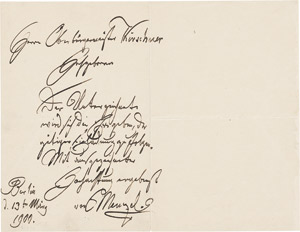 Herrn Oberbürgermeister Kirschner
Hochgeboren
Der Unterzeichnete
wird sich die Ehre geben, der
gütigen Einladung zu folgen.
Mit ausgezeichneter
Hochachtung ergebenst
von Menzel.
Berlin
d. 13t März
1900.